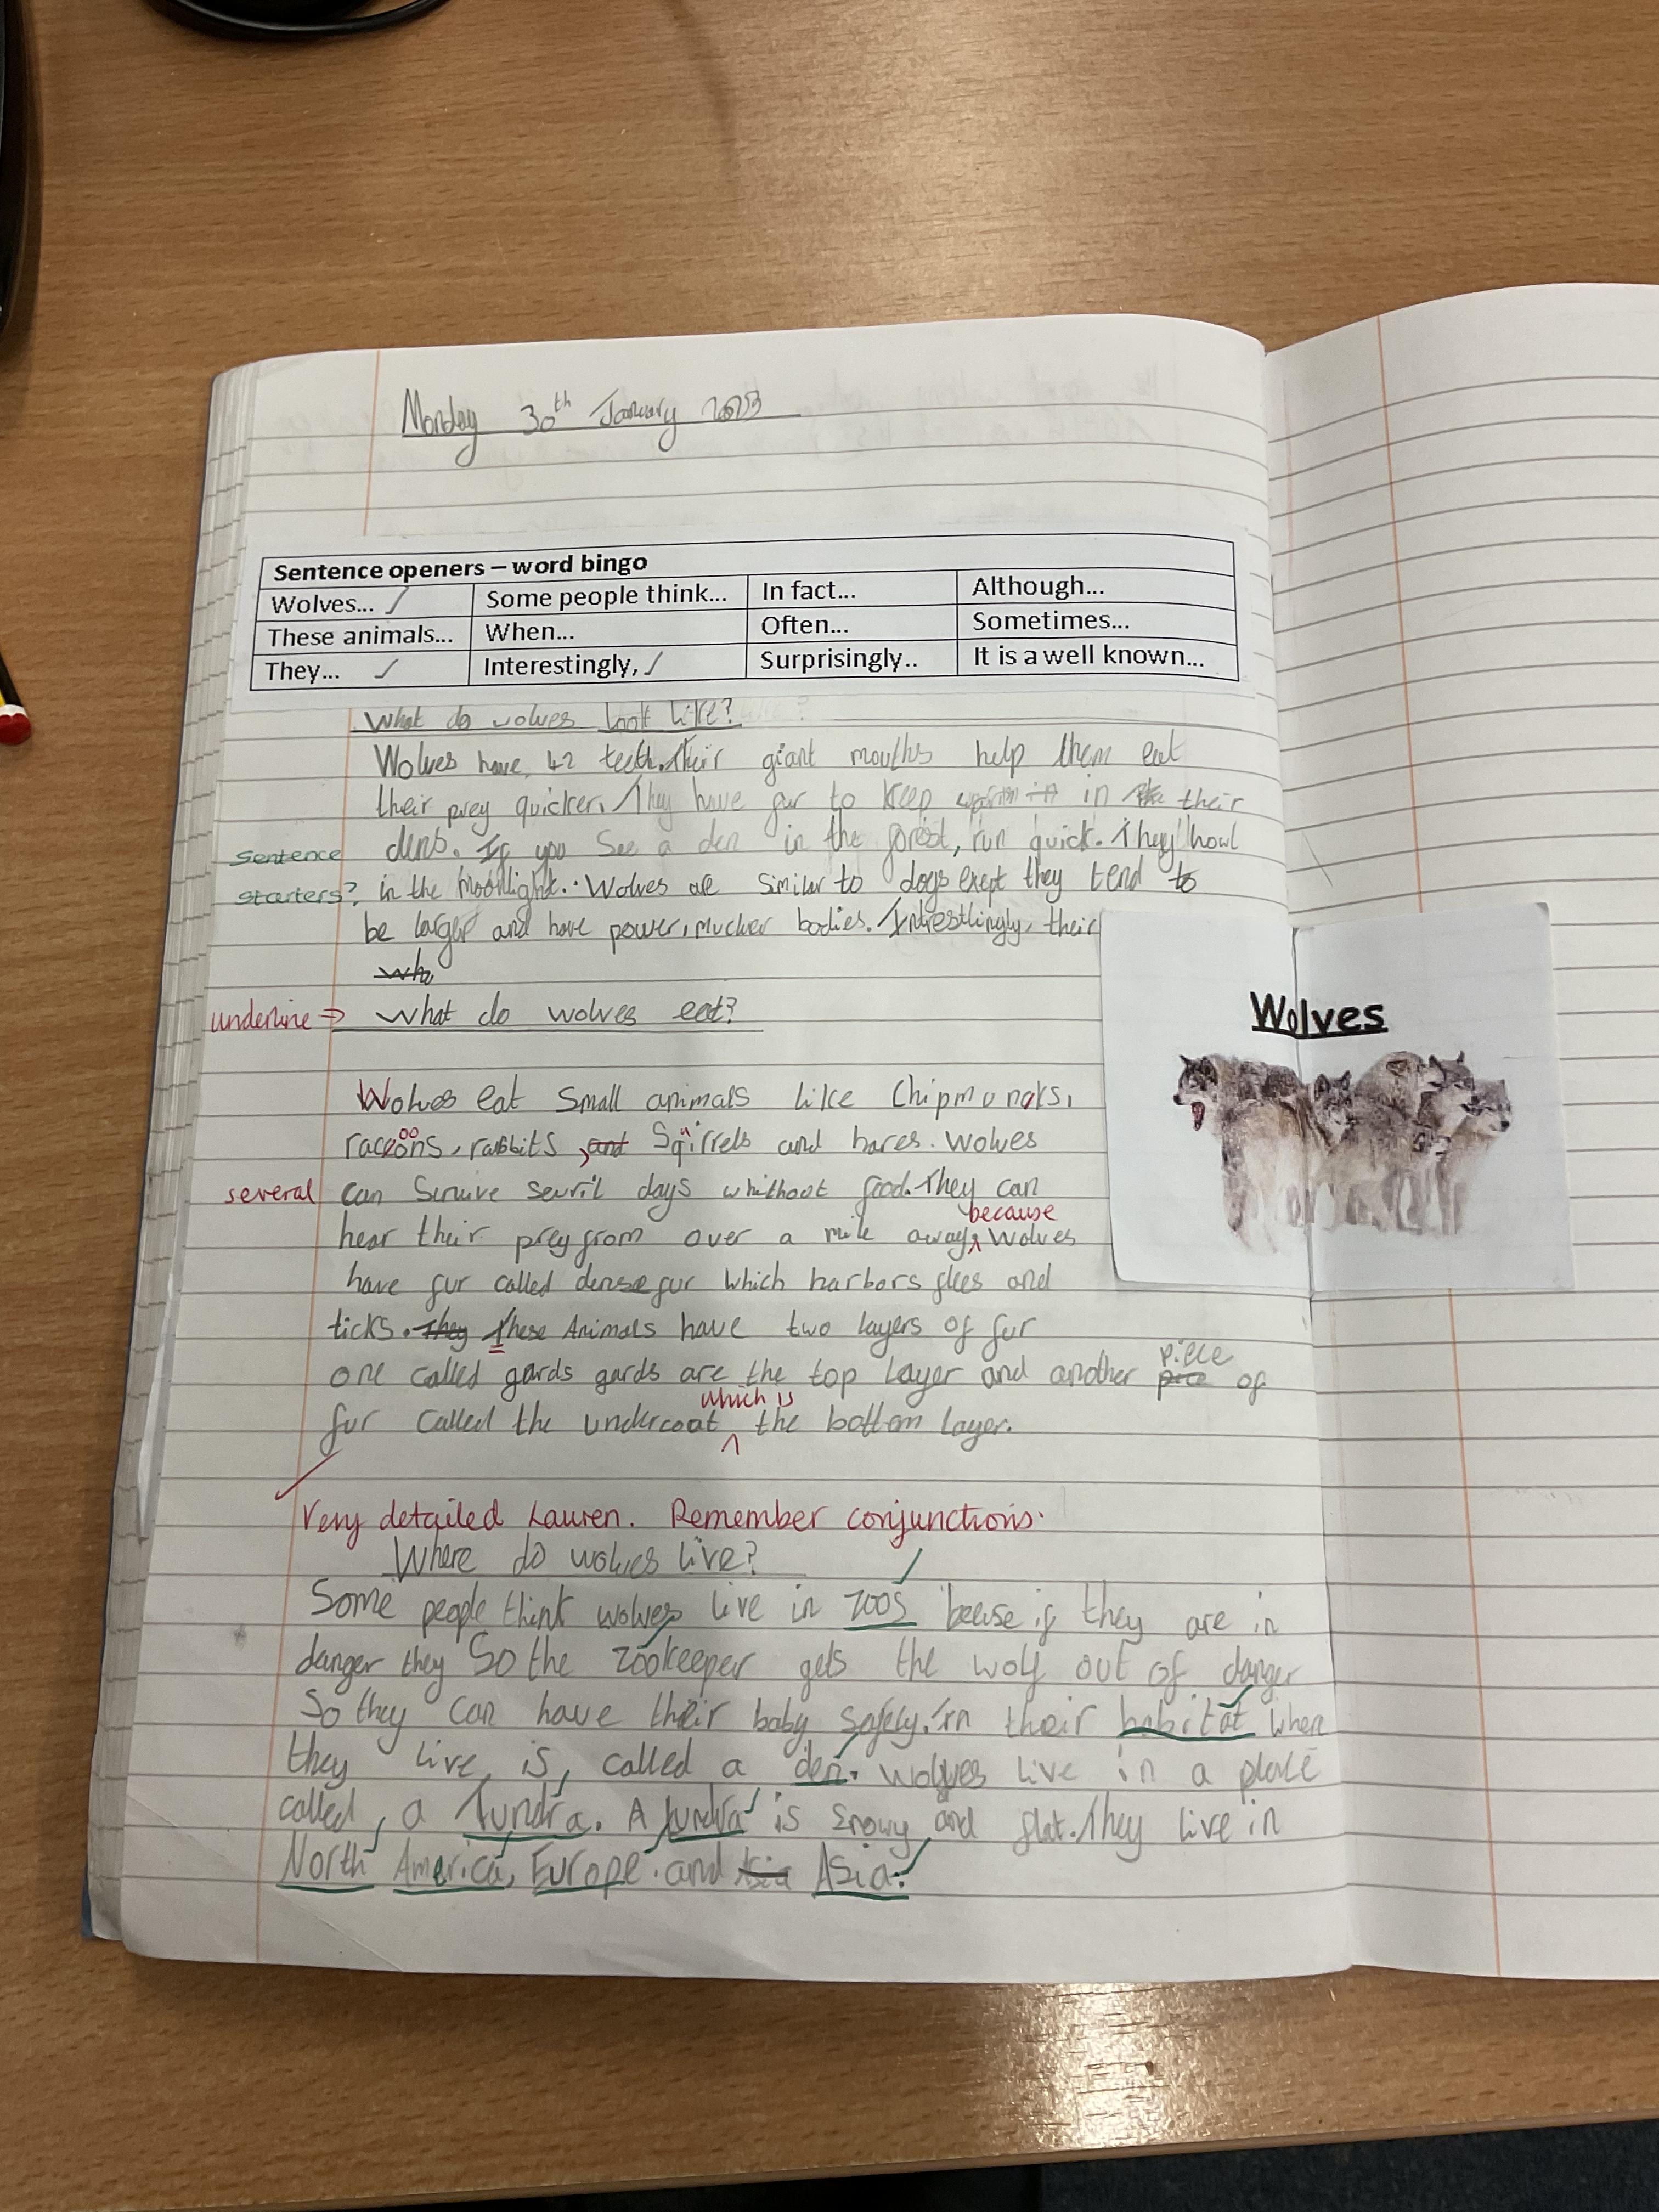 Monday 30th January 2023
Sentence openers – word bingo
Wolves... Some people think... In fact... Although...
These animals... When... Often... Sometimes...
They... Interestingly, Surprisingly.. It is a well known...
What do wolves look like?
Wolves have 42 teeth. Their giant mouths help them eat
their prey quicker. They have fur to keep warm in in their
dens. If you see a den in the forest, run quick. They howl
Sentence
starters?
in the moonlight. Wolves are similar to dogs exept they tend to
be larger and have power, mucker bodies. Intrestlingly, their
who
underline → What do wolves eat?
Wolves
Wolves eat small animals like Chipmonks,
raccoons, rabbits, and Sqirrels and hares. Wolves
several can Surive sevril days whithout food. They can
because
hear their prey from over a mile away, Wolves
have fur called dense fur which harbors flees and
ticks. They These Animals have two layers of fur
piece
one called gards gards are the top Layer and another of
which is
fur called the undercoat the bottom layer.
Very detailed Lauren. Remember conjunctions.
Where do wolves live?
Some people think wolves live in zoos becuse if they are in
danger they So the zookeeper gets the wolf out of danger
So they can have their baby safely. In their habitat when
they live is, called a den. wolves live in a place
called, a Tundra. A tundra is snowy and flat. They live in
North America, Europe. and Asia Asia.